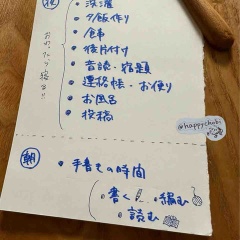 夜
・洗濯
・夕飯作り
・食事
・後片付け
・音読・宿題
・連絡帳・お便り
・お風呂
・投稿
@happychoki
朝
・手書きの時間
・書く
・編む
・読む